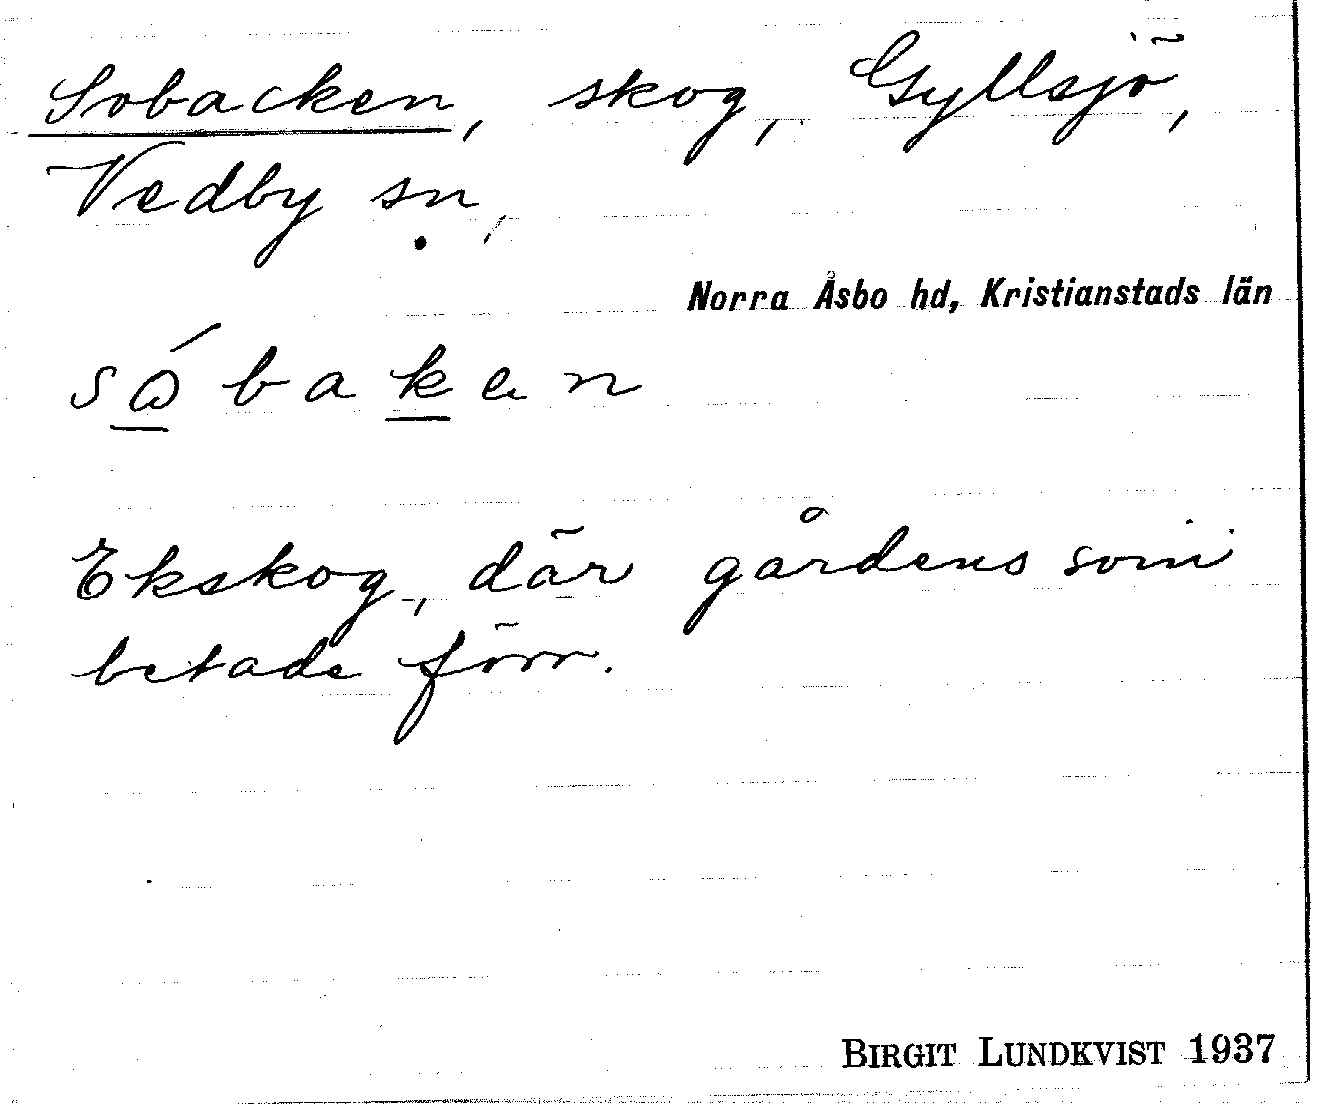 Sobacken, skog, Gyllsjö,
Vedby sn,
Norra Åsbo hd, Kristianstads län
sóbaken
Ekskog, där gårdens svin
betade förr.
BIRGIT LUNDKVIST 1937